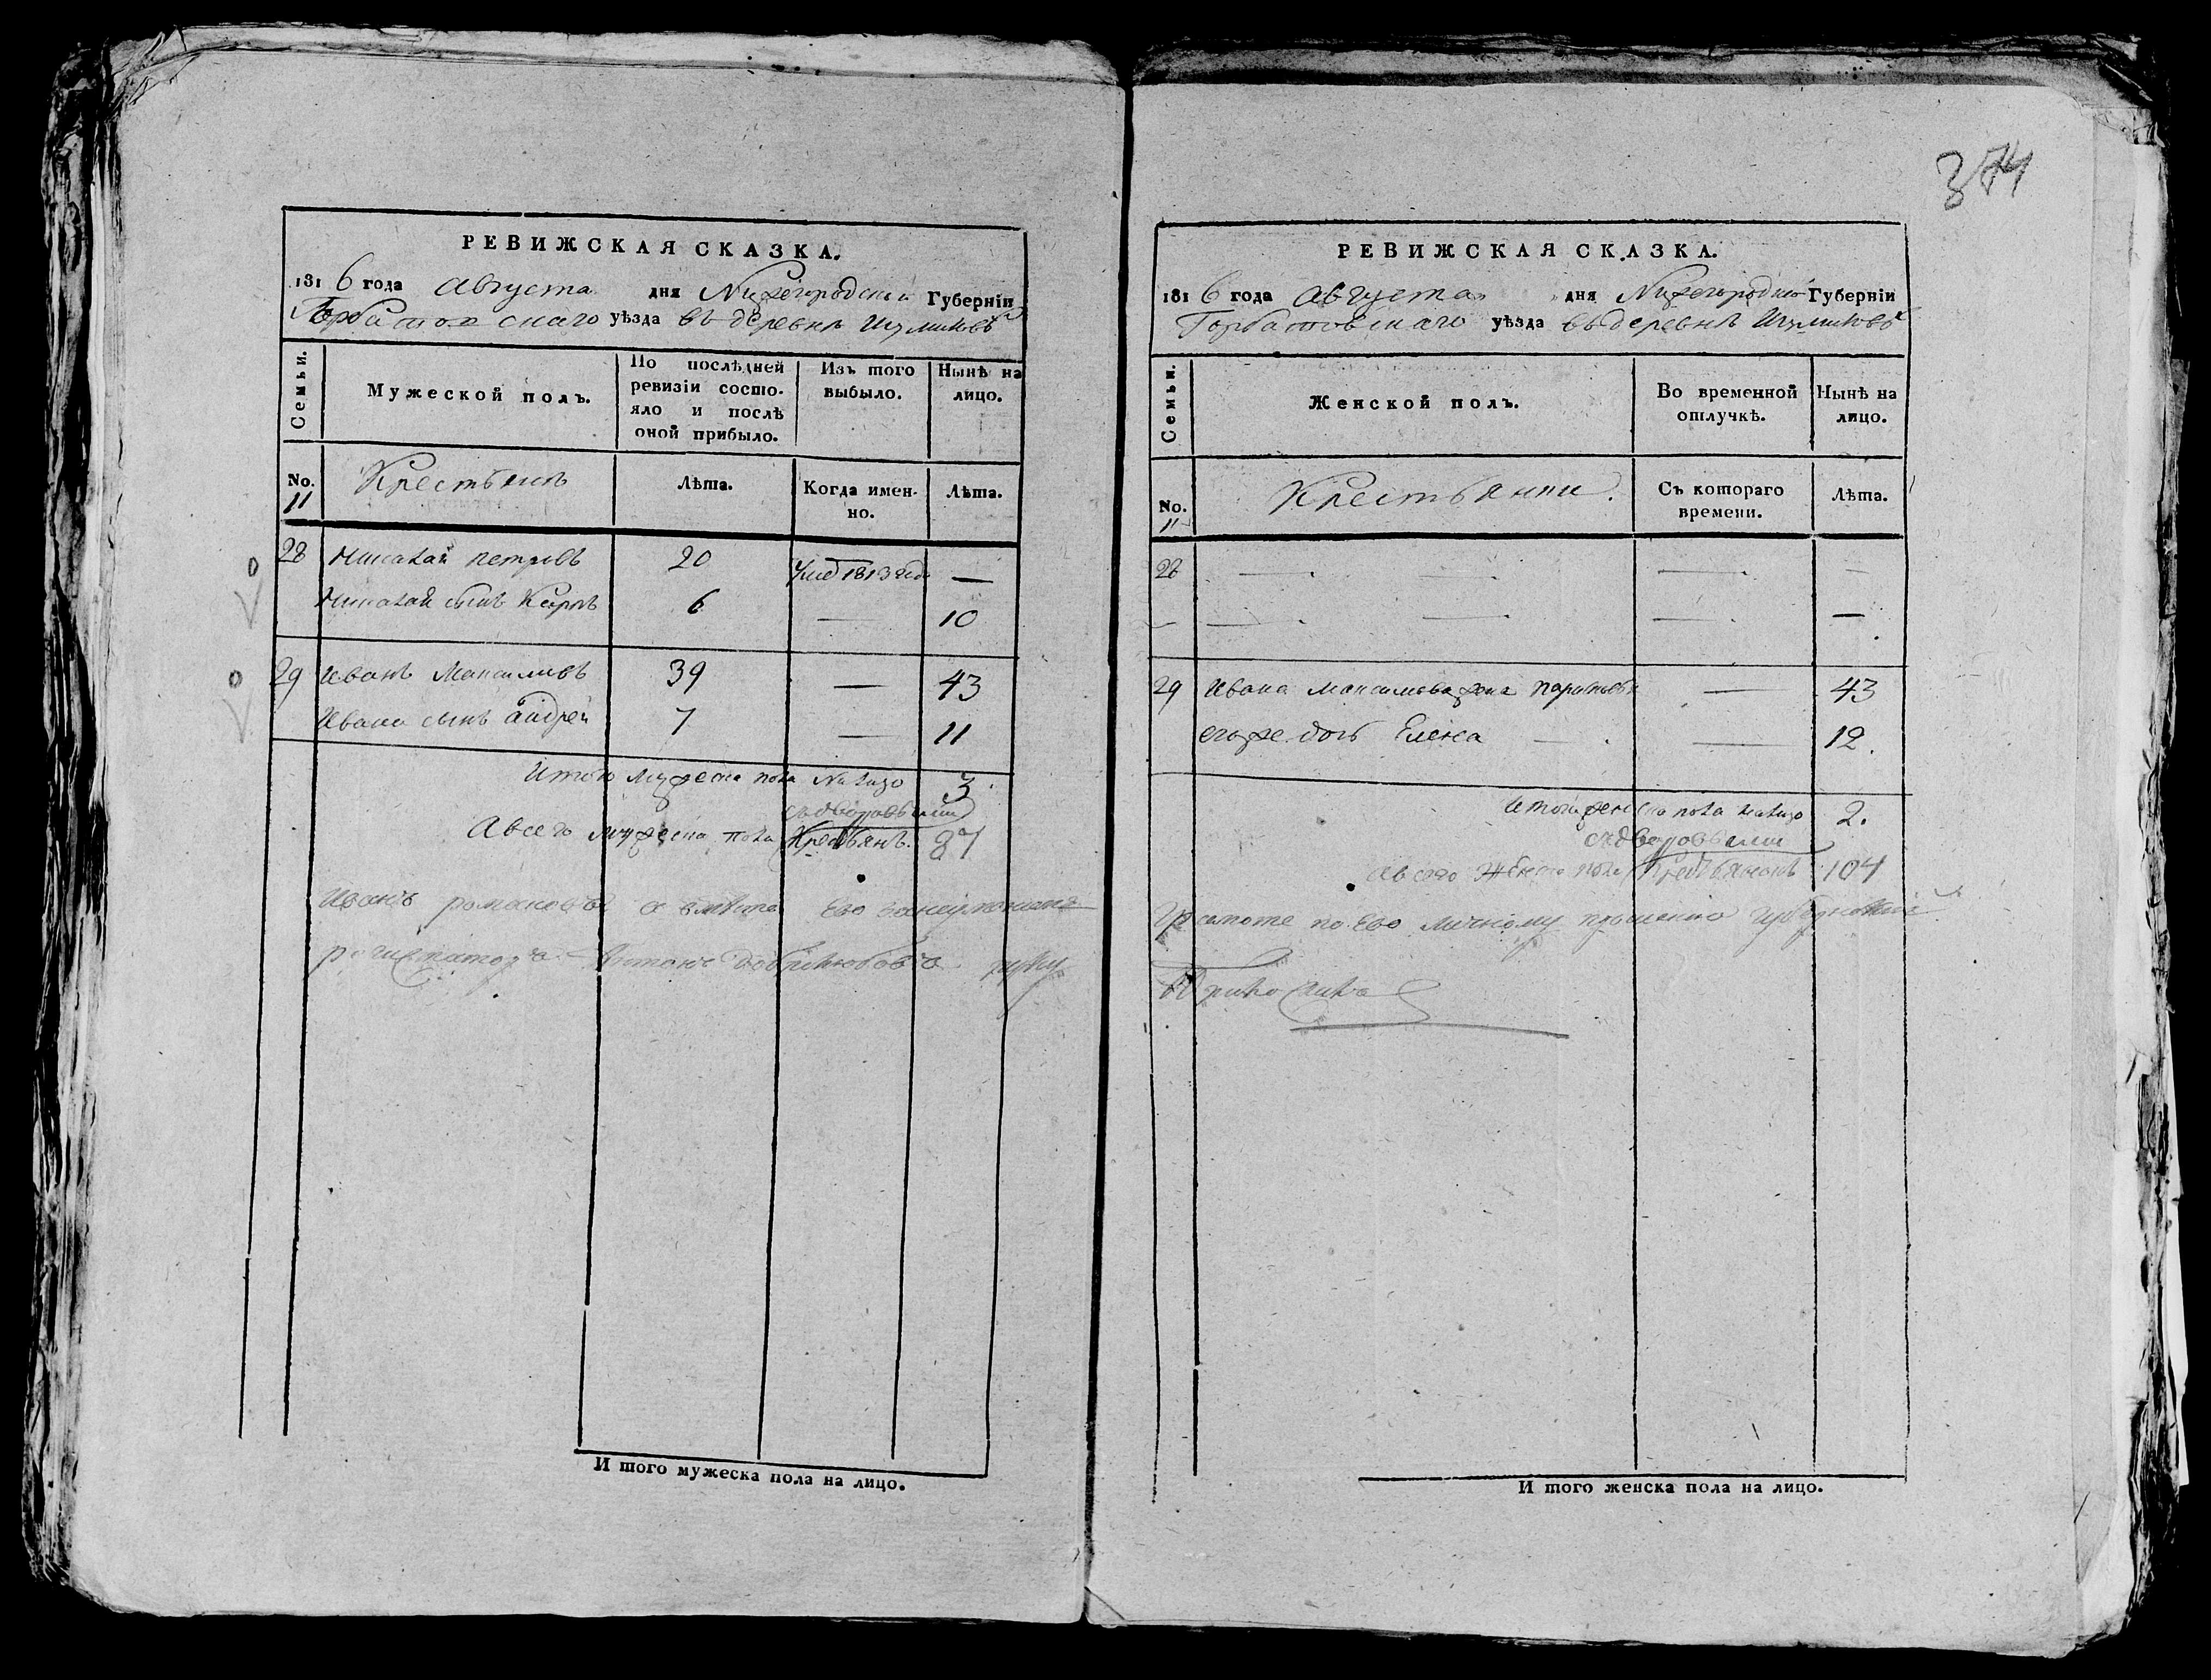 374
РЕВИЖСКАЯ СКАЗКА.
1816 года Августа дня Нижегородской Губерніи
Горбатовскаго уѣзда въ деревнѣ
Семьи.
Мужеской полъ.
По послѣдней ревизіи состо-
яло и послѣ
оной прибыло.
Изъ того
выбыло.
Нынѣ на
лицо.
No.
11
Крестьянѣ
Лѣта.
Когда имен-
но.
Лѣта.
28 Николай петровъ 20 1813 года —
Николай сынъ Карпъ 6 — 10
29 Иванъ Максимовъ 39 — 43
Ивана сынъ андрей 7 — 11
Итого мужеска пола Налицо 3
съдворовыми
Авсего мужеска пола Крестьянъ. 87
Иванъ романовъ а вместо Его
регистраторъ Антонъ Добролюбовъ руку
И того мужеска пола на лицо.
РЕВИЖСКАЯ СКАЗКА.
1816 года Августа дня Нижегородской Губерніи
Горбатовскаго уѣзда въ деревнѣ
Семьи.
Женской полъ.
Во временной
отлучкѣ.
Нынѣ на
лицо.
No.
11
Крестьянки.
Съ котораго
времени.
Лѣта.
28 — — — —
— — — — —
29 Ивана Максимова жена — 43
егоже дочь Елена — — 12.
Итого женска пола налицо 2.
съдворовыми
авсего Женска пола 104
грамоте по Его личному прошению губернской
Приложилъ
И того женска пола на лицо.